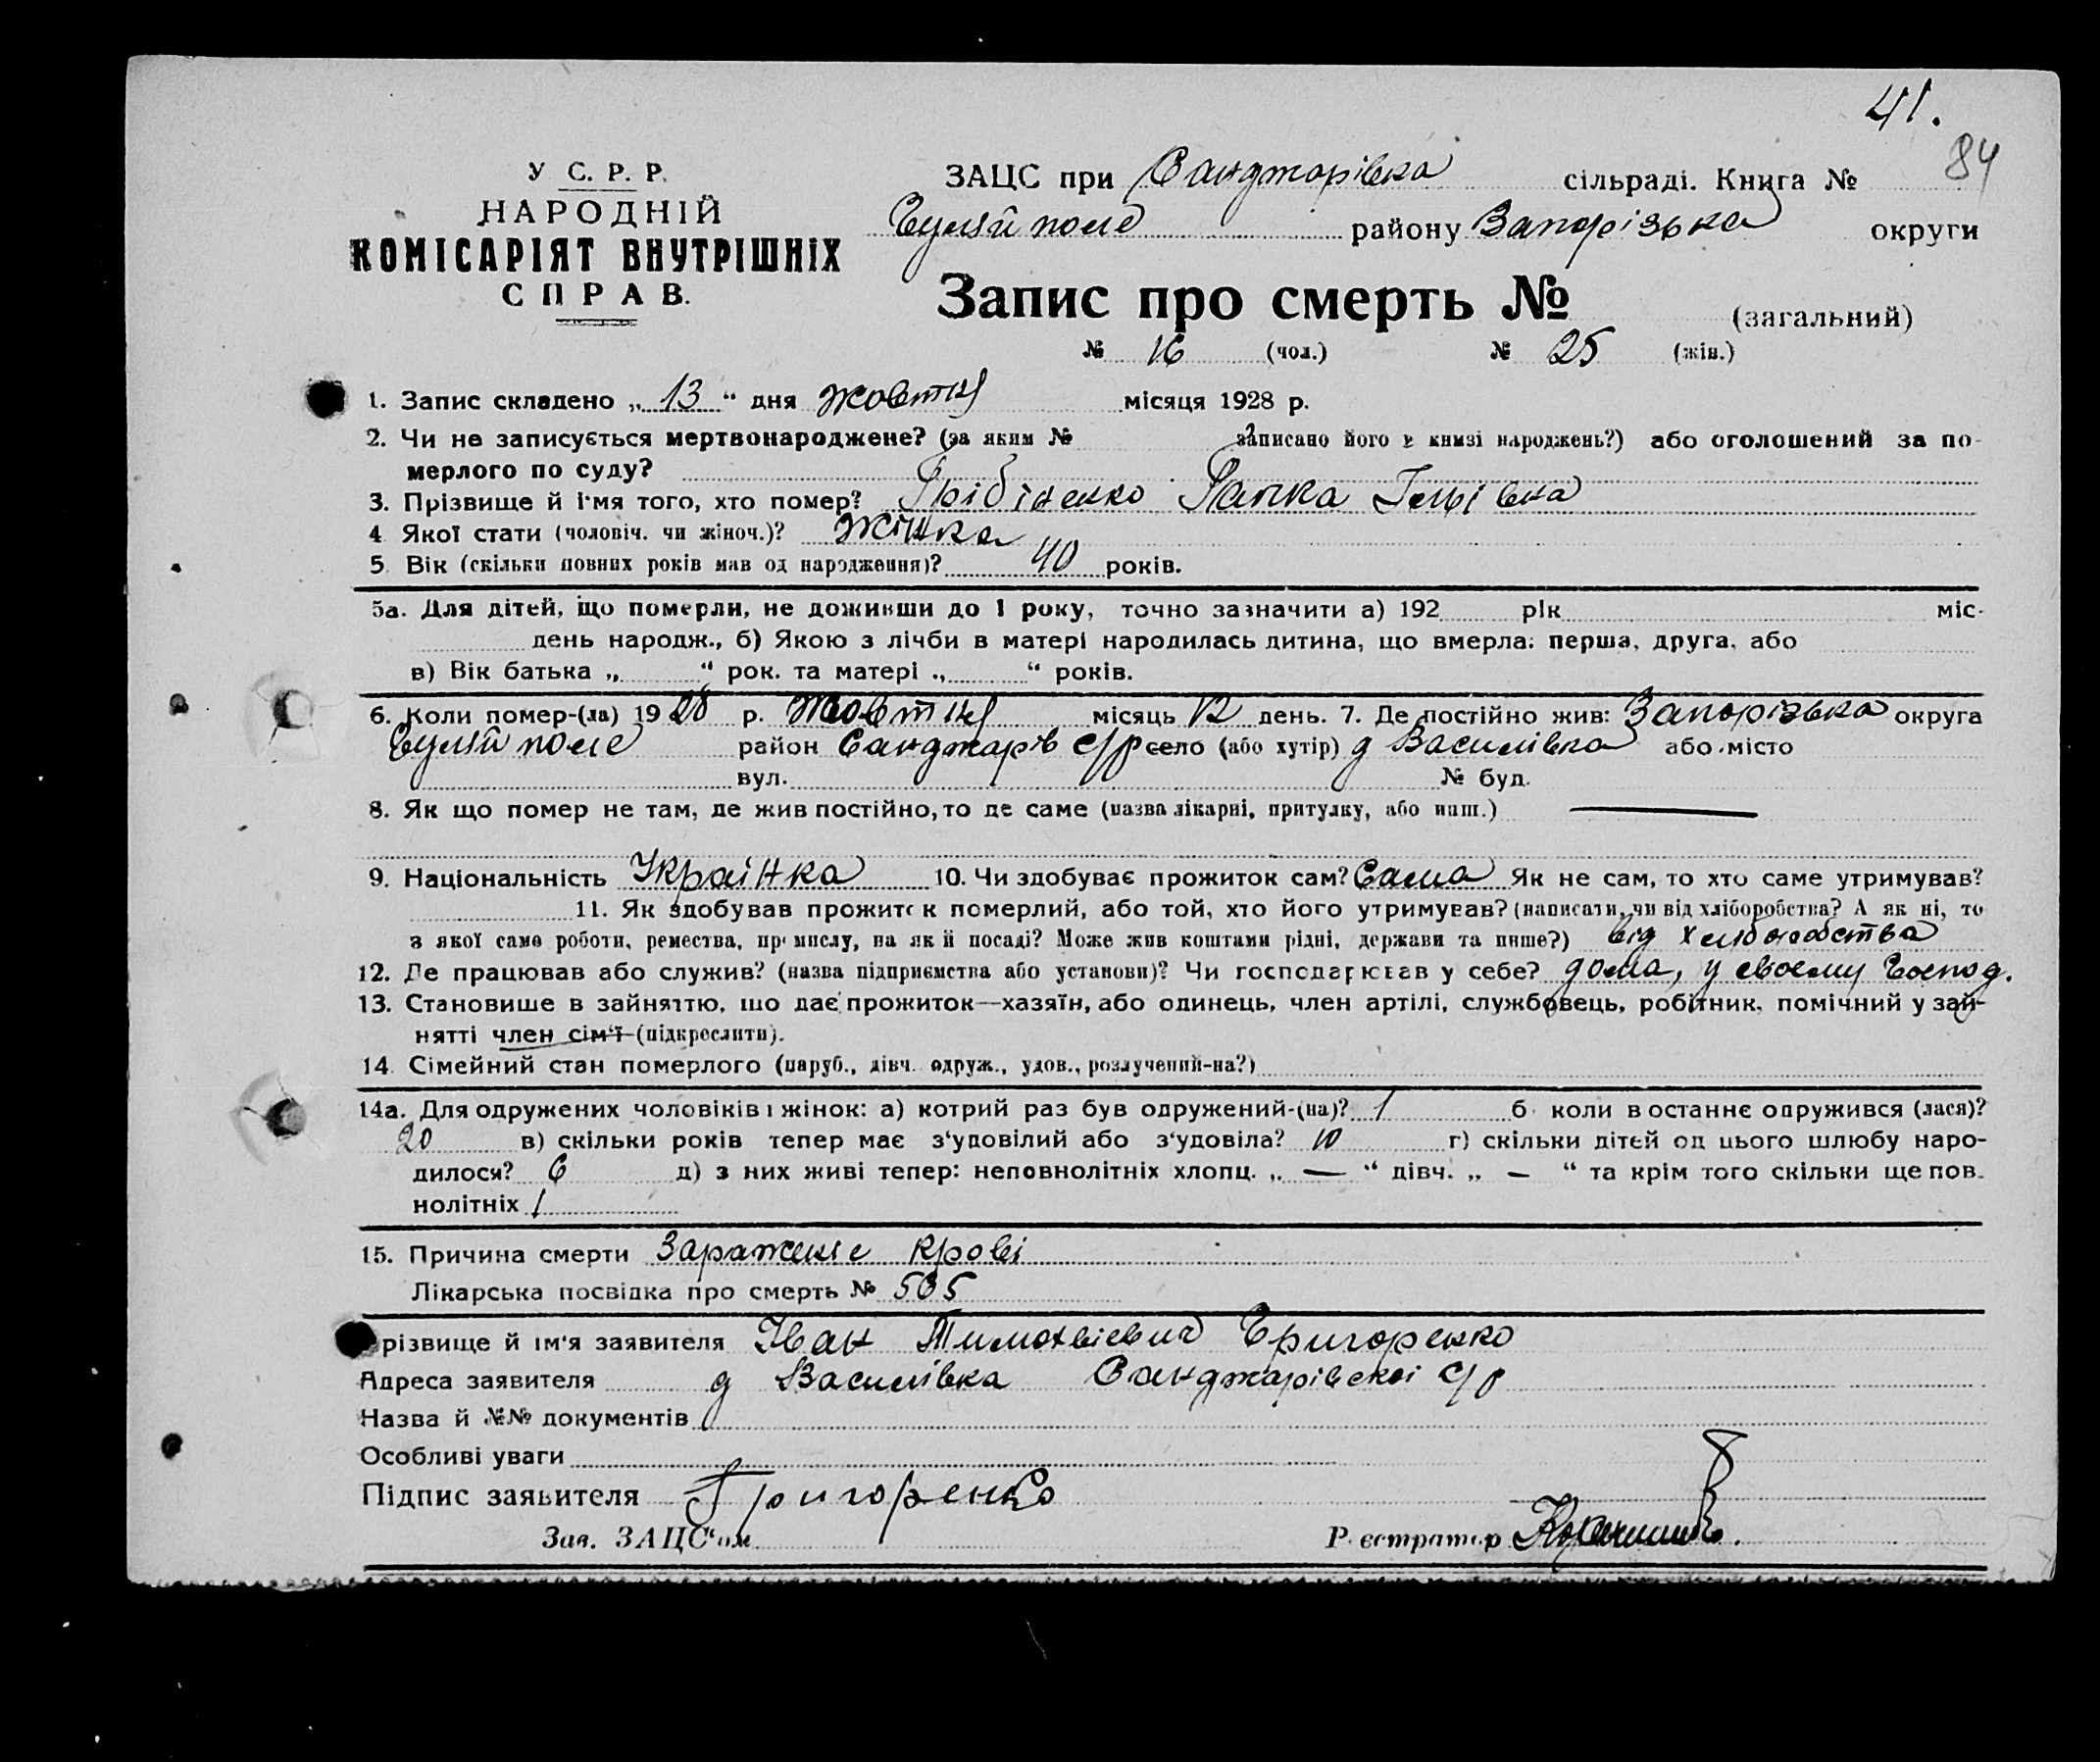 41.
84
У С. Р. Р.
НАРОДНІЙ
КОМІСАРІЯТ ВНУТРІШНІХ
СПРАВ.
ЗАЦС при Санджарівка сільраді. Книга №
Гуляй поле району Запорізька округи
Запис про смерть № (загальний)
№ 16 (чол.) № 25 (жін.)
1. Запис складено „ 13 “ дня жовтня місяця 1928 р.
2. Чи не записується мертвонароджене? (за яким № записано його в книзі народжень?) або оголошений за по-
мерлого по суду?
3. Прізвище й і'мя того, хто помер?
4 Якої стати (чоловіч. чи жіноч.)? жінка
5. Вік (скільки повних років мав од народження)? 40 років.
5а. Для дітей, що померли, не доживши до 1 року, точно зазначити а) 192 рік міс.
день народж., б) Якою з лічби в матері народилась дитина, що вмерла: перша, друга, або
в) Вік батька „ “ рок. та матері „ “ років.
6. Коли помер-(ла) 1928 р. Жовтня місяць 12 день. 7. Де постійно жив: Запорізька округа
Гуляй поле район Санджарів с/р село (або хутір) д Василівка або місто
вул. № буд.
8. Як що помер не там, де жив постійно, то де саме (назва лікарні, притулку, або инш.) —
9. Національність Українка 10. Чи здобуває прожиток сам? Сама Як не сам, то хто саме утримував?
11. Як здобував прожиток померлий, або той, хто його утримував? (написати, чи від хліборобства? А як ні, то
з якої саме роботи, ремества, промислу, на якій посаді? Може жив коштами рідні, держави та инше?) від хліборобства
12. Де працював або служив? (назва підприємства або установи)? Чи господарював у себе? дома, у своему господ.
13. Становище в зайняттю, що дає прожиток—хазяїн, або одинець, член артілі, службовець, робітник, помічний у зай-
нятті член сім'ї (підкреслити).
14. Сімейний стан померлого (паруб., дівч. одруж., удов., розлучений-на?)
14а. Для одружених чоловіків і жінок: а) котрий раз був одружений-(на)? 1 б коли в останнє одружився (лася)?
20 в) скільки років тепер має з'удовілий або з'удовіла? 10 г) скільки дітей од цього шлюбу наро-
дилося? 6 д) з них живі тепер: неповнолітніх хлопц. „ — “ дівч. „ — “ та крім того скільки ще пов-
нолітніх 1
15. Причина смерти Зараженіе крові
Лікарська посвідка про смерть № 565
різвище й ім'я заявителя Іван Тимохвіевич Григоренко
Адреса заявителя д Василівка Санджарівскоі с/р
Назва й №№ документів
Особливі уваги
Підпис заявителя Григоренко
Зав. ЗАЦС'ом Реєстратор